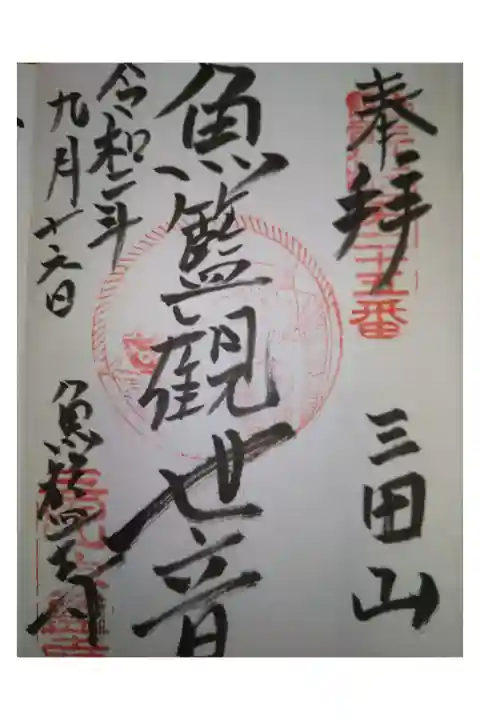 奉拝
三田山
魚籃観世音
令和二年
九月十六日
魚籃寺
二十五番